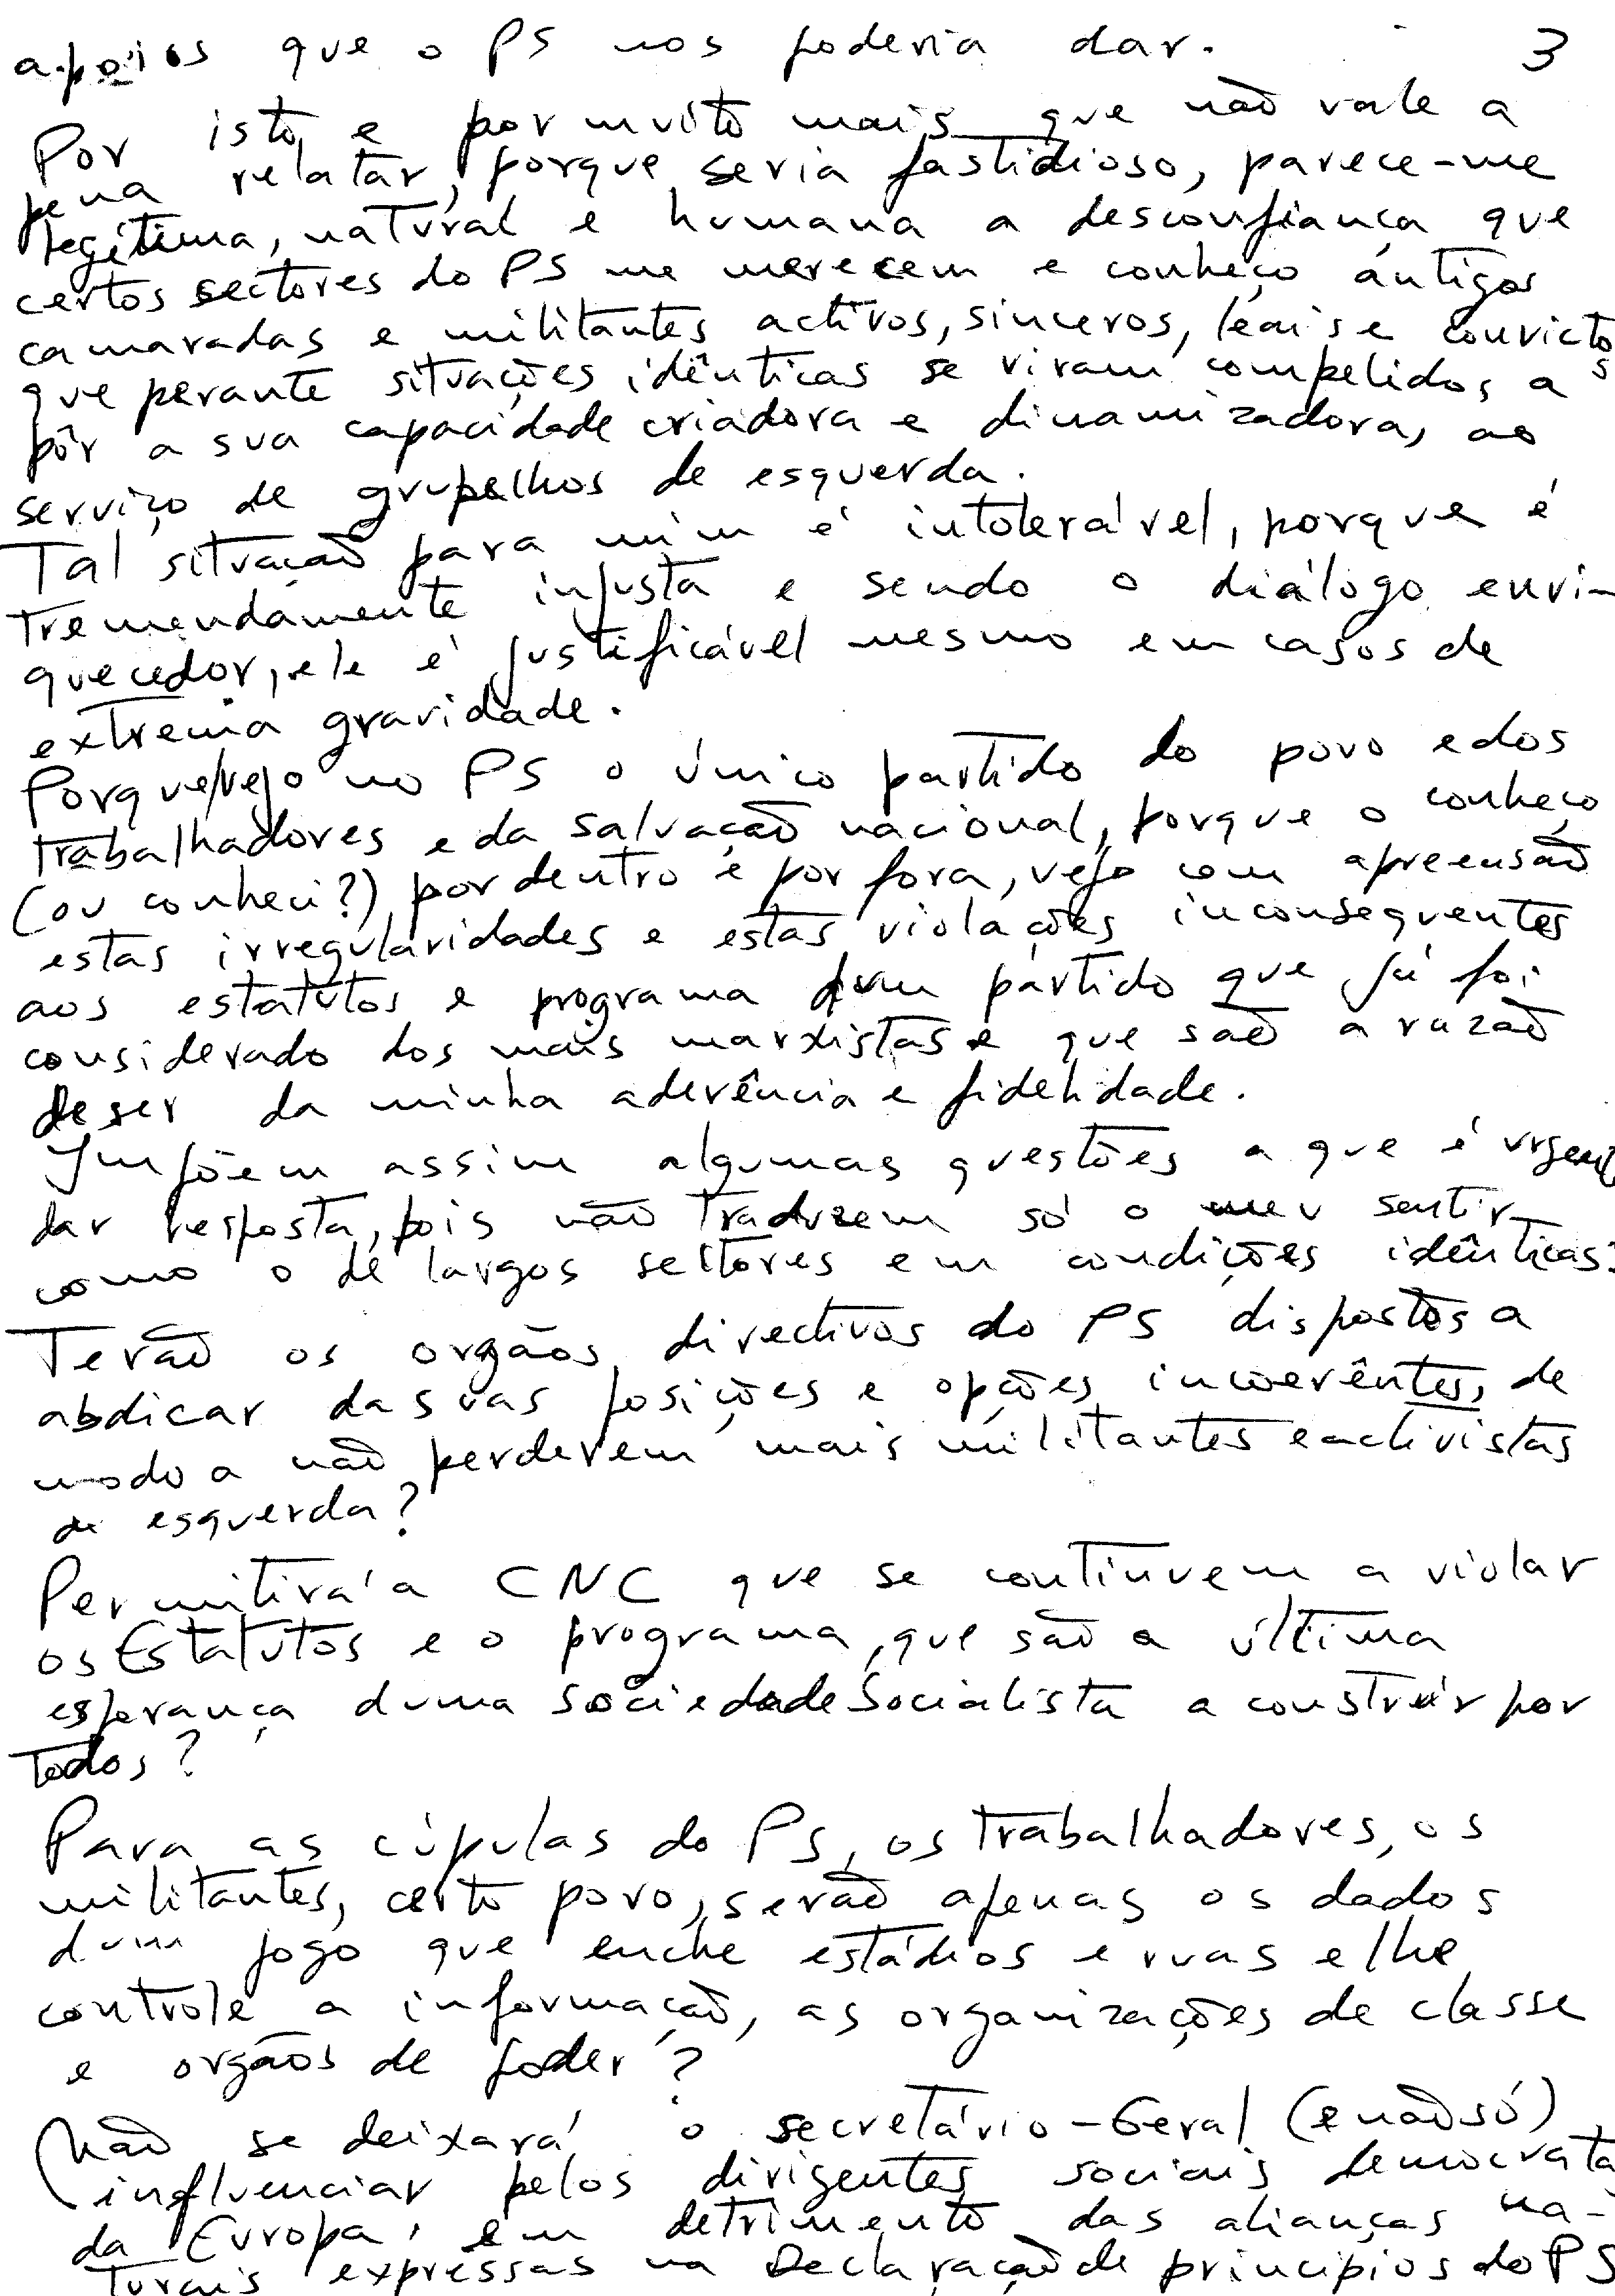 apoios que o PS nos poderia dar. 3
Por isto e por muito mais que não vale a
pena relatar, porque seria fastidioso, parece-me
legítima, natural e humana a desconfiança que
certos sectores do PS me merecem e conheço antigos
camaradas e militantes activos, sinceros, leais e convictos
que perante situações idênticas se viram compelidos a
pôr a sua capacidade criadora e dinamizadora, ao
serviço de grupelhos de esquerda.
Tal situação para mim é intolerável, porque é
tremendamente injusta e sendo o diálogo enri-
quecedor, ele é justificável mesmo em casos de
extrema gravidade.
Porque vejo no PS o único partido do povo e dos
trabalhadores e da salvação nacional, porque o conheço
(ou conheci?) por dentro e por fora, vejo com apreensão
estas irregularidades e estas violações inconsequentes
aos estatutos e programa dum partido que já foi
considerado dos mais marxistas e que são a razão
de ser da minha aderência e fidelidade.
Impõem assim algumas questões a que é urgente
dar resposta, pois não traduzem só o meu sentir
como o de largos sectores em condições idênticas:
Terão os orgãos directivos do PS dispostos a
abdicar das suas posições e opções incoerêntes, de
modo a não perderem mais militantes e activistas
de esquerda?
Permitirá a CNC que se continuem a violar
os Estatutos e o programa, que são a última
esperança duma sociedade socialista a construir por
todos?
Para as cúpulas do PS, os trabalhadores, os
militantes, certo povo, serão apenas os dados
dum jogo que enche estádios e ruas e lhe
controle a informação, as organizações de classe
e orgãos de poder?
Não se deixará o secretário-Geral (e não só)
influenciar pelos dirigentes sociais democratas
da Europa, em detrimento das alianças na-
turais expressas na Declaração de princípios do PS